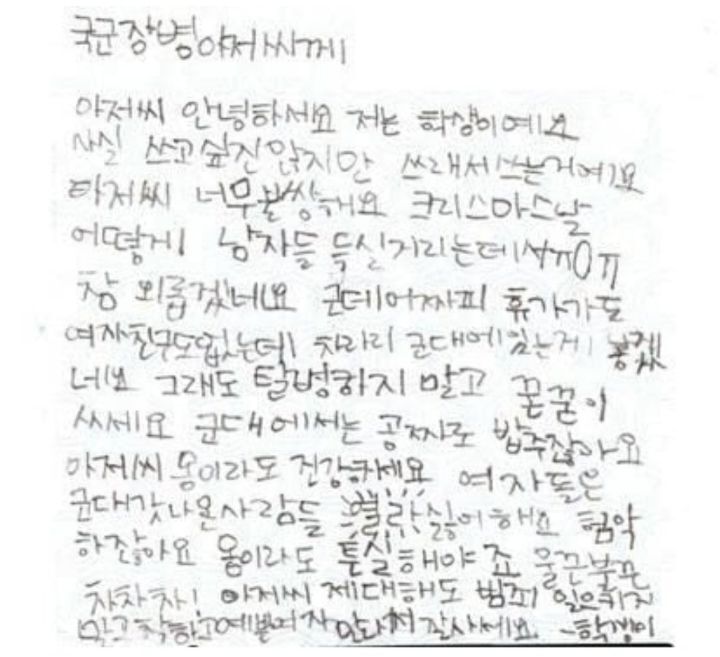 국군장병아저씨께
아저씨 안녕하세요 저는 학생이예요
사실 쓰고싶진 않지만 쓰래서쓰는거예요
아저씨 너무불쌍해요 크리스마스날
어떻게 남자들 득실거리는데서ㅠㅠ0ㅠ
참 외롭겠네요 근데어짜피 휴가가도
여자친구도없는데 차라리 군대에있는게
네요 그래도 탈병하지 말고 꾿꾿이
싸세요 군대에서는 공짜로 밥주잖아요
아저씨 몸이라도 건강하세요 여자들은
군대갓나온사람들 별로싫어해요 험악
하잖아요 몸이라도 튼실해야죠 울끈불끈
차차차! 아저씨 제대해도 범죄 일으키지
말고착하고예쁜여자만나서잘사세요 -학생이